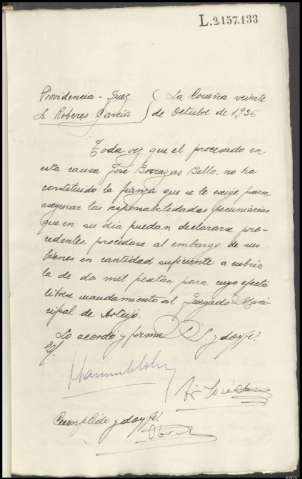 L.2157.133
Providencia - Juez
Sr Roberes García
La Coruña veinte
de Octubre de 1936
Toda vez que el procesado en
esta causa José Bello, no ha
constituido la fianza que se le exige para
asegurar las responsabilidades pecuniarias
que en su día puedan declararse pro-
cedentes procédase al embargo de sus
bienes en cantidad suficiente a cubrir
la de dos mil pesetas para cuyo efecto
líbrese mandamiento al Juzgado Muni-
cipal de Arteijo.
Lo acordó y firma S. S. y doy fe.
Cumplido y doy fe.